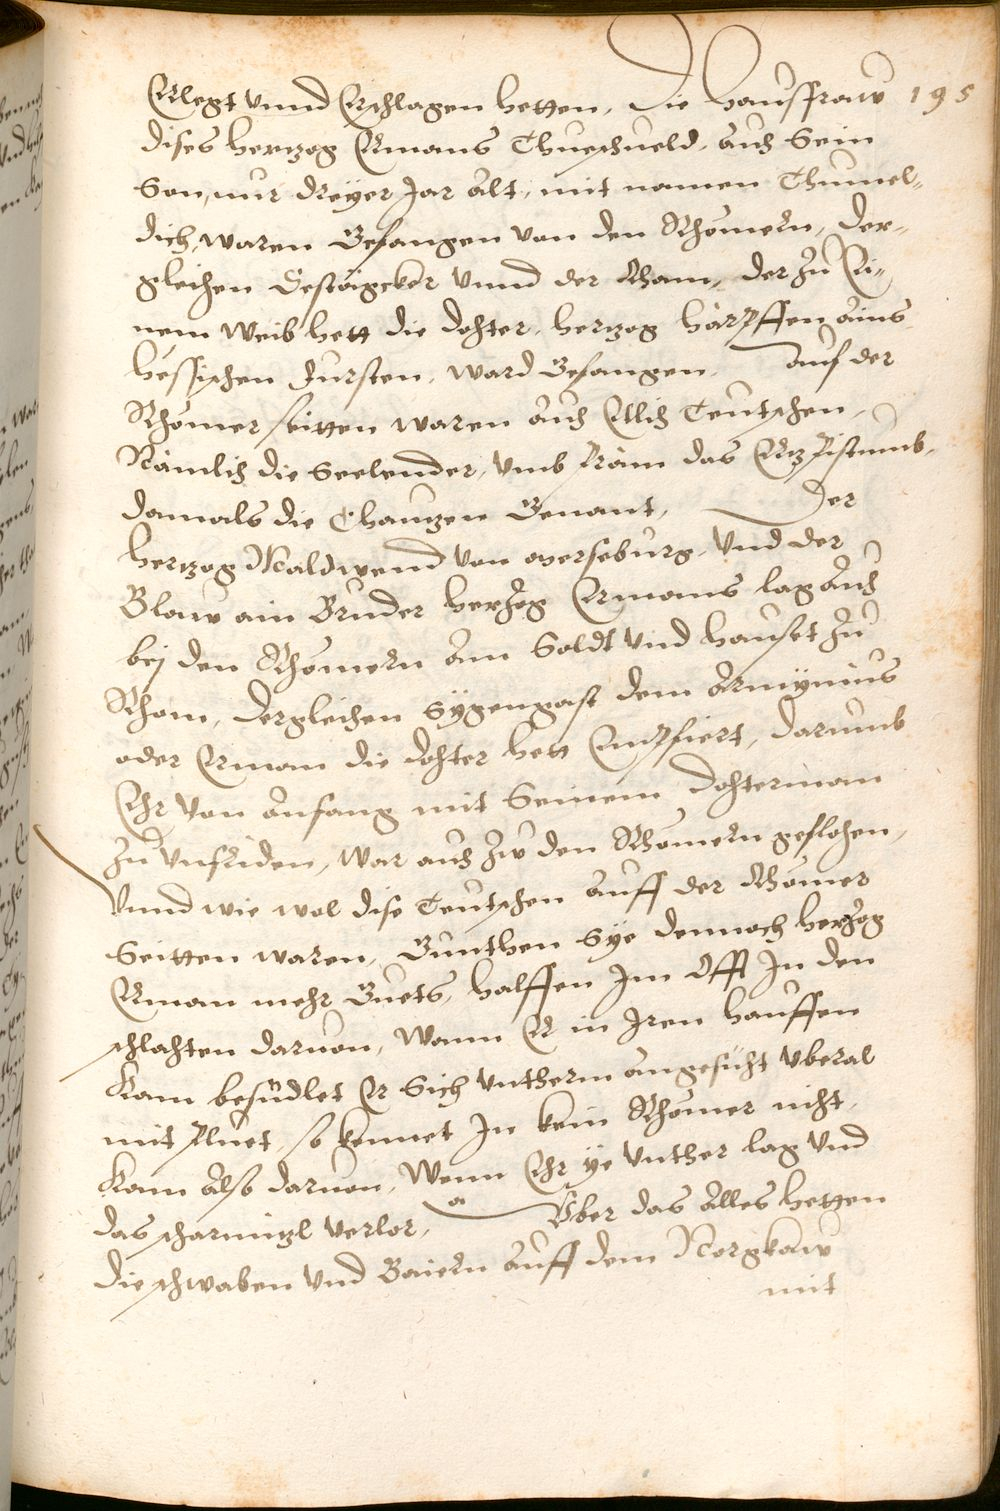 Erlegt vnnd Erschlagen hetten, Die hausfraw 195
dises hertzog Ermans Thueschueld, auch Sein
Son, nur dreyer Jar alt, mit namen Thumel-
dich, waren Gefangen von den Rhömern, der-
gleichen Sestägcker vnnd der Rham, der zu Ei-
nem Weib hett die dohter, hertzog härpffen ains
hessischen Fursten, ward Gefangen. Auf der
Rhömer seitten waren auch Etlich Teutschen,
Nämlich die Seelender, vmb Präm das Ertzpistumb,
damals die Chautzen Genant, Der
hertzog Maldwend von Merseburg, Vnd der
Blaw ain Bruder herzog Ermans lag auch
bej den Rhömern am Soldt vnd hauset zu
Rhom, dergleichen Sygengast dem Armynius
oder Erman die dohter hett Entpfiert, darumb
Ehr von Anfang mit Seinem dohterman
zu vnfriden, war auch zw den Rhömern geflohen,
Vnnd wie wol dise Teutschen auff der Rhömer
Seitten waren, Gunthen Sye dennoch herzog
Erman mehr Guets, halffen Im Offt In den
schlahten daruon, Wann Er in Iren hauffen
Kam besudlet Er Sich vntherm angesicht vberal
mit pluet, so kennet In kein Rhömer nicht,
Kam also daruon, Wenn Ehr ye vnther lag vnd
das scharmitzl verlor, Vber das Alles hetten
die schwaben vnd Baiern auff dem Norgkaw
mit